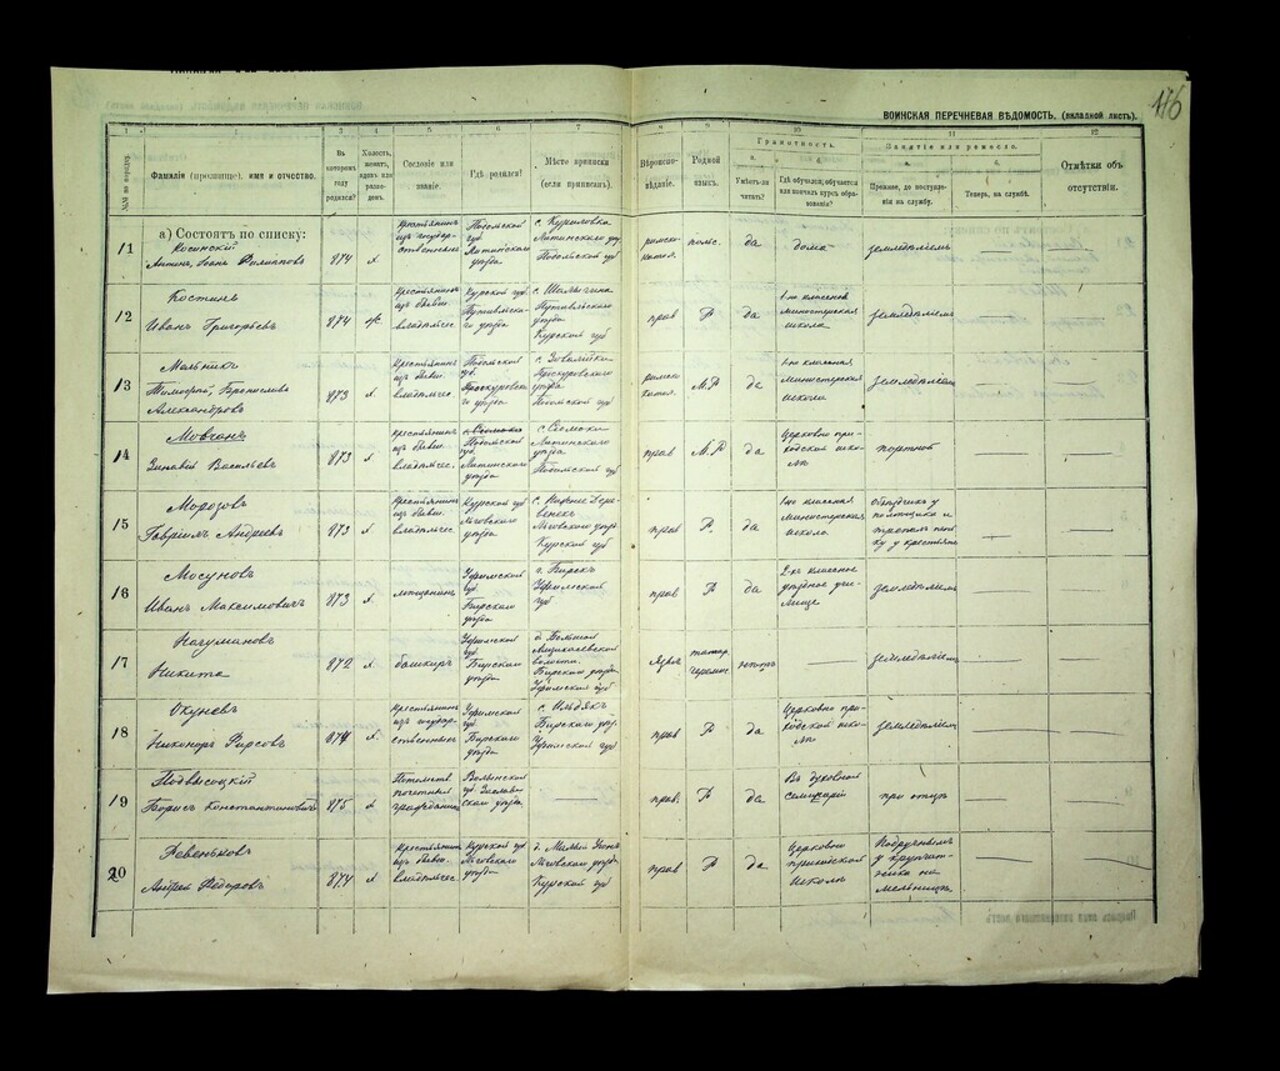 176
ВОИНСКАЯ ПЕРЕЧНЕВАЯ ВѢДОМОСТЬ. (вкладной листъ).
1 2 3 4 5 6 7 8 9 10 11 12
№№ по порядку.
Фамилія (прозвище), имя и отчество.
Въ которомъ году родился?
Холостъ, женатъ, вдовъ или разведенъ.
Сословіе или званіе.
Гдѣ родился?
Мѣсто приписки (если приписанъ).
Вѣроисповѣданіе.
Родной языкъ.
Грамотность.
а. Умѣетъ-ли читать?
б. Гдѣ обучался; обучается или кончилъ курсъ образованія?
Занятіе или ремесло.
а. Прежнее, до поступленія на службу.
б. Теперь, на службѣ.
Отмѣтки объ отсутствіи.
а) Состоятъ по списку:
11
Косинскій
Антонъ, Іоанъ Филипповъ
874 х
крестьянинъ изъ государственныхъ
Подольской губ. Литинскаго уѣзда
с. Куриловка Литинскаго уѣз. Подольской губ
римско-катол. польс. да дома земледѣліемъ
12
Костинъ
Иванъ Григорьевъ
874 ж
крестьянинъ изъ бывш. владѣльчес.
Курской губ. Путивльскаго уѣзда
с. Шалыгина Путивльскаго уѣзда Курской губ
прав Р да
1-но классной министерская школа
земледѣліемъ
13
Мельникъ
Тимофей, Брониславъ Александровъ
873 х
крестьянинъ изъ бывш. владѣльчес.
Подольской губ. Проскуровскаго уѣзда
Проскуровскаго уѣзда Подольской губ
римско-катол. М.Р да
1-но классная министерская школа
земледѣліемъ
14
Мовчанъ
Зиновій Васильевъ
873 х
крестьянинъ изъ бывш. владѣльчес.
Подольской губ. Литинскаго уѣзда
с. Сѣомаки Литинскаго уѣзда Подольской губ
прав М.Р да
церковно приходской школѣ
портной
15
Морозовъ
Гавріилъ Андреевъ
873 х
крестьянинъ изъ бывш. владѣльчес
Курской губ Льговскаго уѣзда
с. Нижніе Деревенекъ Льговскаго уѣз. Курской губ
прав Р. да
1но классная министерская школа
16
Мосуновъ
Иванъ Максимовичъ
873 х.
мѣщанинъ
Уфимской губ. Бирскаго уѣзда
г. Бирскъ Уфимской губ
прав Р да
2-хъ классное уѣздное училище
земледѣліемъ
17
Нагумановъ
Никита
872 х
башкиръ
Уфимской губ. Бирскаго уѣзда
д. Большая волости. Бирскаго уѣзда Уфимской губ
языч татар. черемис нѣтъ
земледѣліемъ
18
Окуневъ
Никоноръ Фирсовъ
874 х.
крестьянинъ изъ государственныхъ
Уфимской губ. Бирскаго уѣзда
с. Ильдякъ Бирскаго уѣз. Уфимской губ
прав Р да
церковно приходской школѣ
земледѣліемъ
19
Подвысоцкій
Борисъ Константиновичъ
875 х
Потомств. почетный гражданинъ
Волынской губ. Заславскаго уѣзда
прав. Р да
Въ духовной семинаріи
при отцѣ
20
Ревеньковъ
Андрей Федоровъ
874 х
крестьянинъ изъ бывш. владѣльчес.
Курской губ. Льговскаго уѣзда
Льговскаго уѣзда Курской губ
прав Р да
церковно приходской школѣ
Подручнымъ у крупчатника на мельницѣ